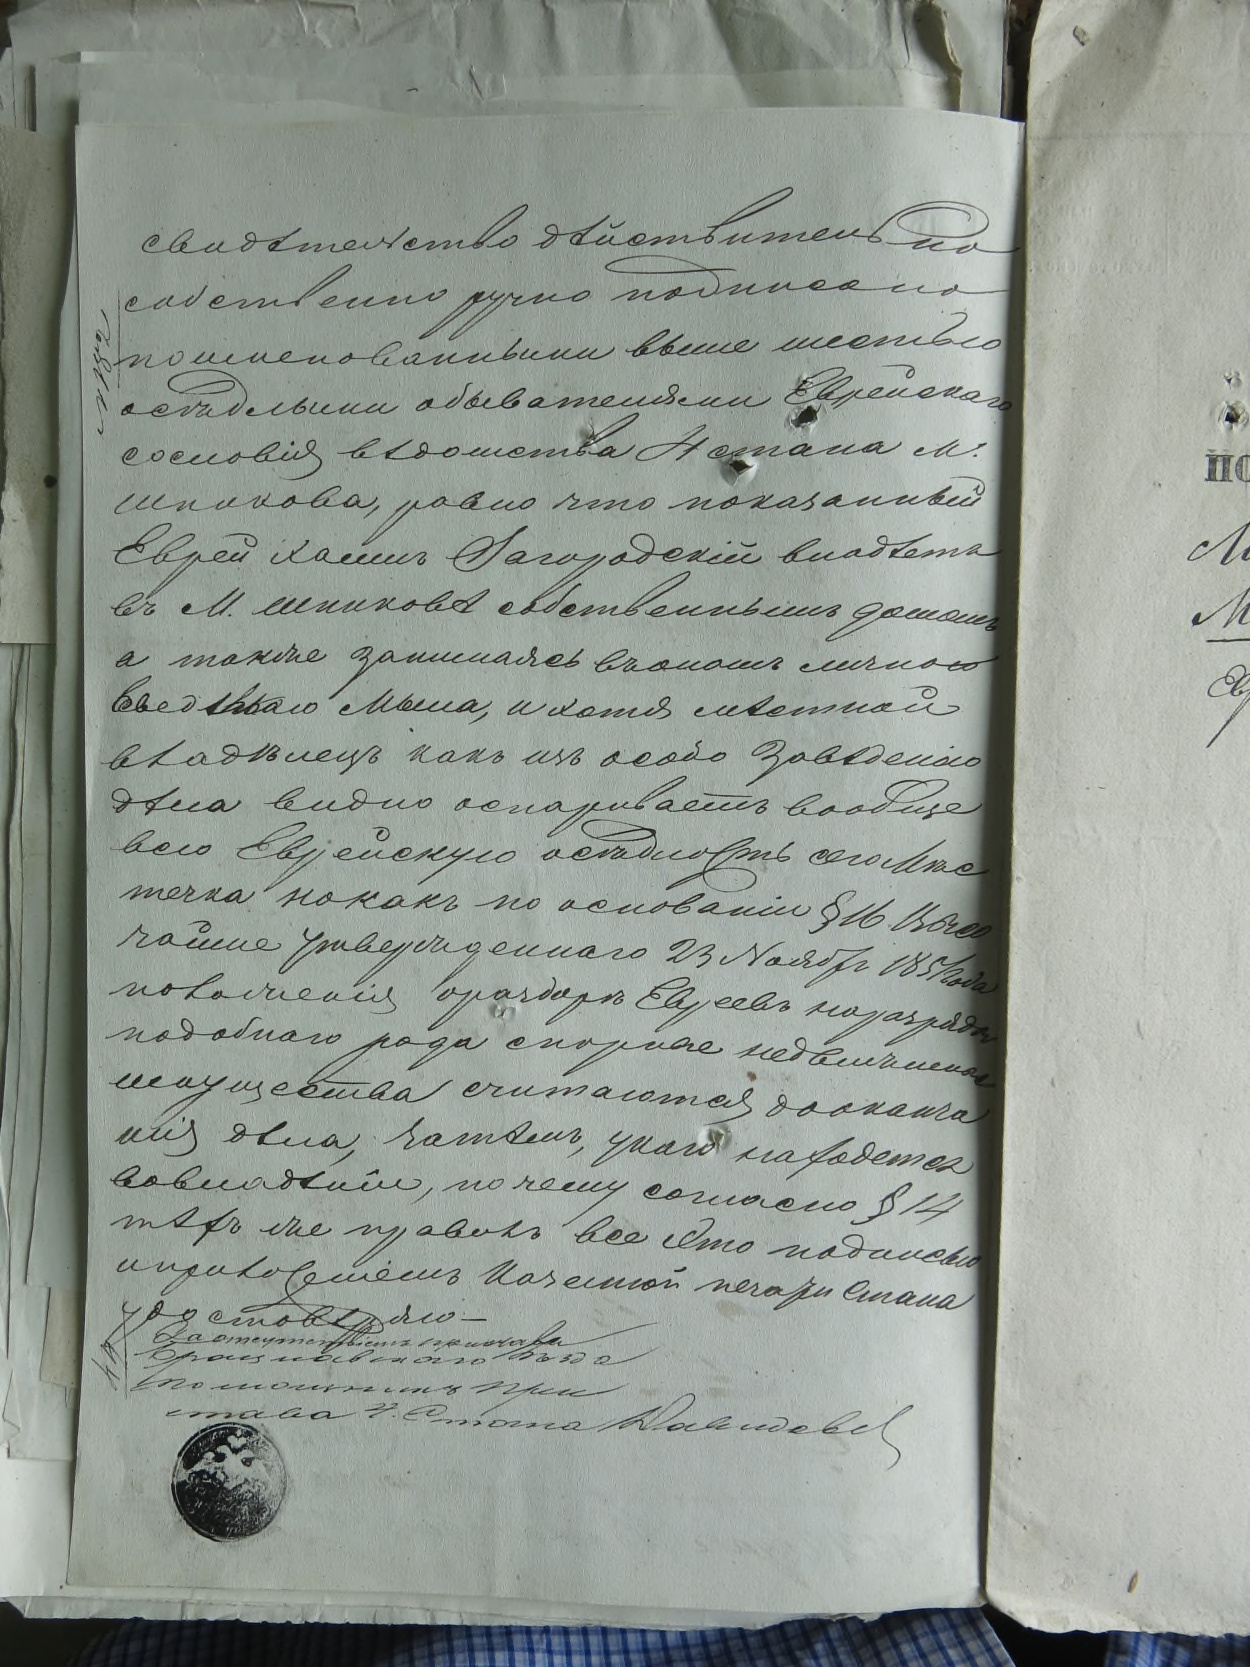 свидѣтельство дѣйствительно
собственно ручно подписано
поименованными выше шестью
осѣдлыми обывателями Еврейскаго
сословія вѣдомства 4 стана м.
Шпикова, равно что показанный
Еврей Хаимъ Загородскій владѣетъ
въ М. Шпиковѣ собственнымъ домомъ
а также занимаясь въ ономъ лично
мыла, и хотя мѣстной
владѣлецъ какъ изъ особо Заведенаго
дѣла видно оспариваетъ вообще
всю Еврейскую осѣдлость сего Мѣс
течка но какъ по основаніи § 16 Высо
чайше утвержденнаго 23 Ноябр 1851 года
положенія о разборѣ Евреевъ на разряды
подобнаго рода спорные недвижимые
имущества считаются до оконча
нія дѣла, затемъ, у кого находется
во владѣніи, почему согласно § 14
тѣхъ же правилъ все это подписью
и приложеніемъ Казенной печати Стана
удостовѣряю —
За отсутствіемъ пристава
Брацлавскаго уѣзда
помощникъ при
става 4. Стана Давидовъ
ПО
М
М